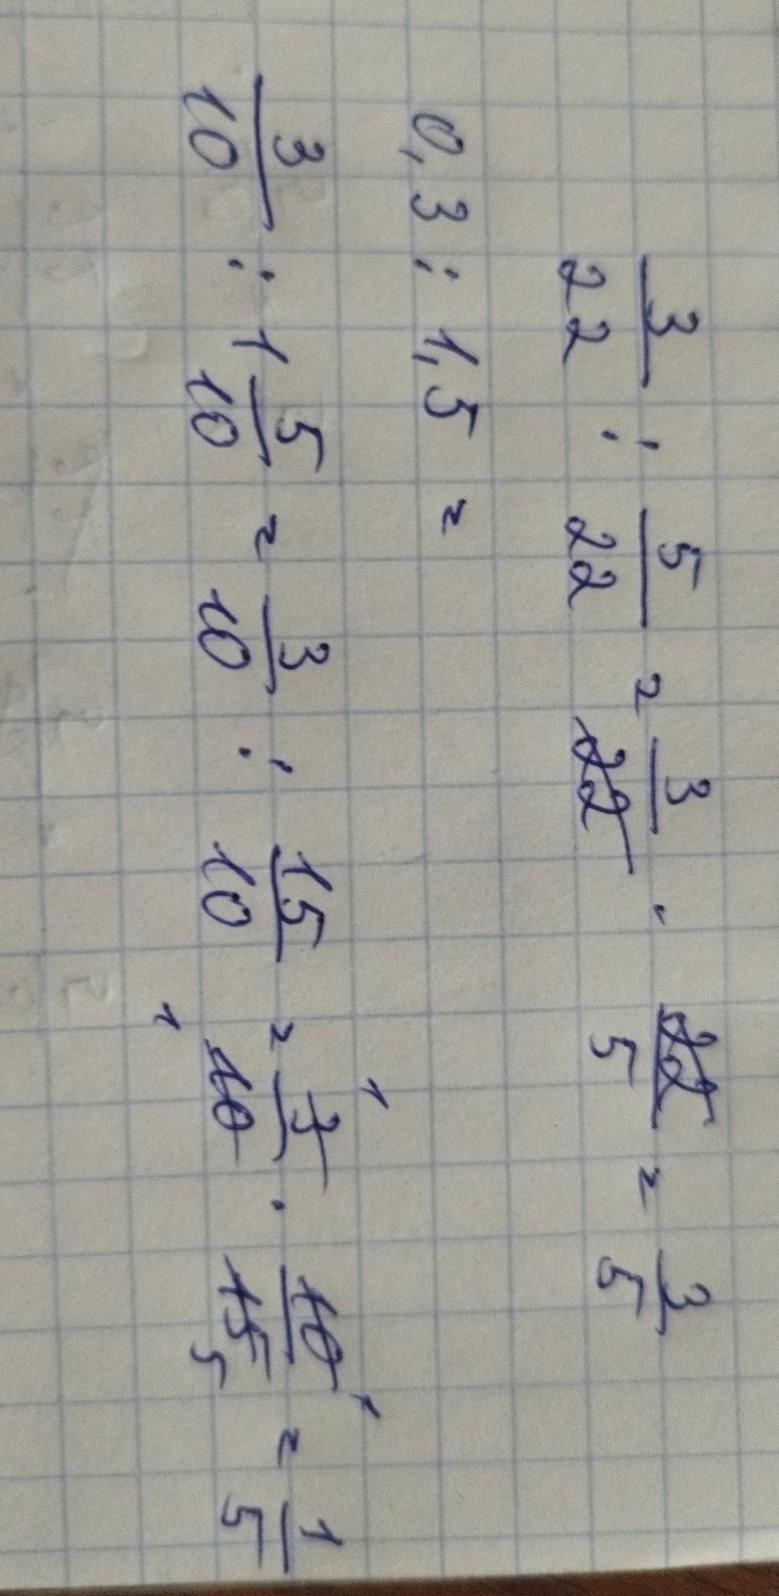 3/22 : 5/22 = 3/22 · 22/5 = 3/5
0,3 : 1,5 =
3/10 : 1 5/10 = 3/10 : 15/10 = 3/10 · 10/15 = 1/5